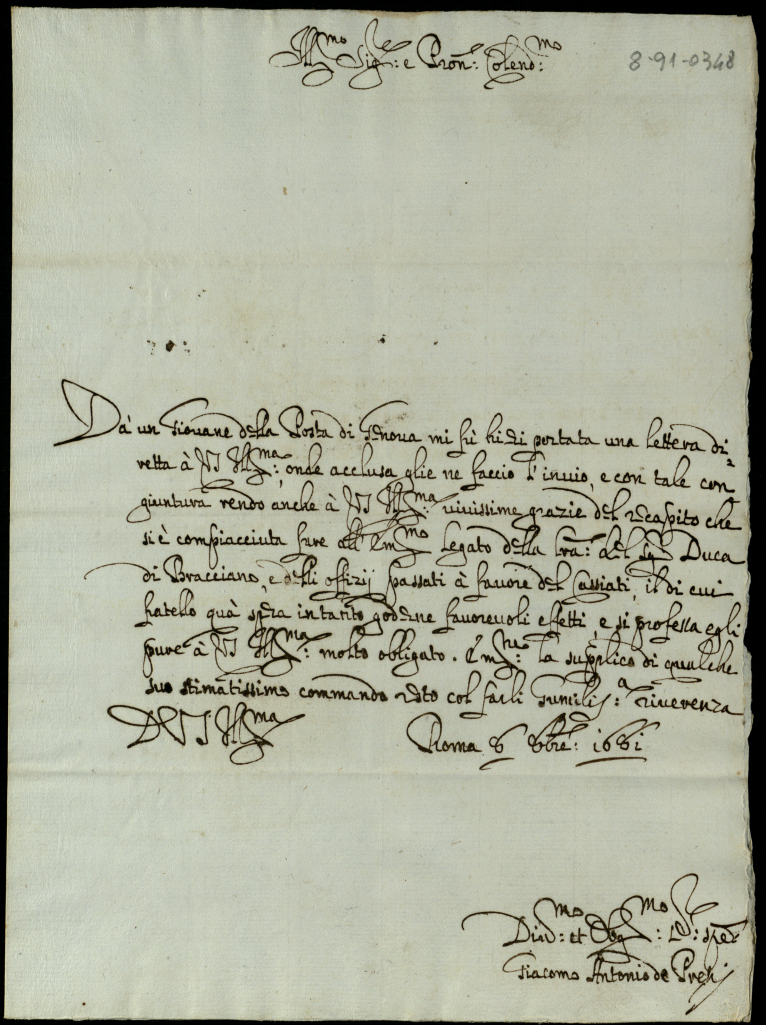 Ill.mo Sig.re e Pron: Colend.mo
8-91-0348
Dà un Giovane della Posta di Genova mi fù hieri portata una lettera di=
retta à VS Ill.ma: onde acclusa glie ne faccio l'invio, e con tale con=
giuntura rendo anche à VS Ill.ma vivissime grazie del recapito che
si è compiacciuta fare all' Em.mo Legato della lra: del Sig. Duca
di Bracciano, e delli offizij passati à favore del Cassiati, il di cui
fratello quà spera intanto goderne favorevoli effetti, e si professa egli
pure à VS Ill.ma: molto obligato. E m.tre: la supplico di qualche
suo stimatissimo commando resto col farli humiliss.a: riverenza
D VS Ill.ma
Roma 8 8bre: 1661
Div.mo: et Obg.mo: S.re:
Giacomo Antonio de